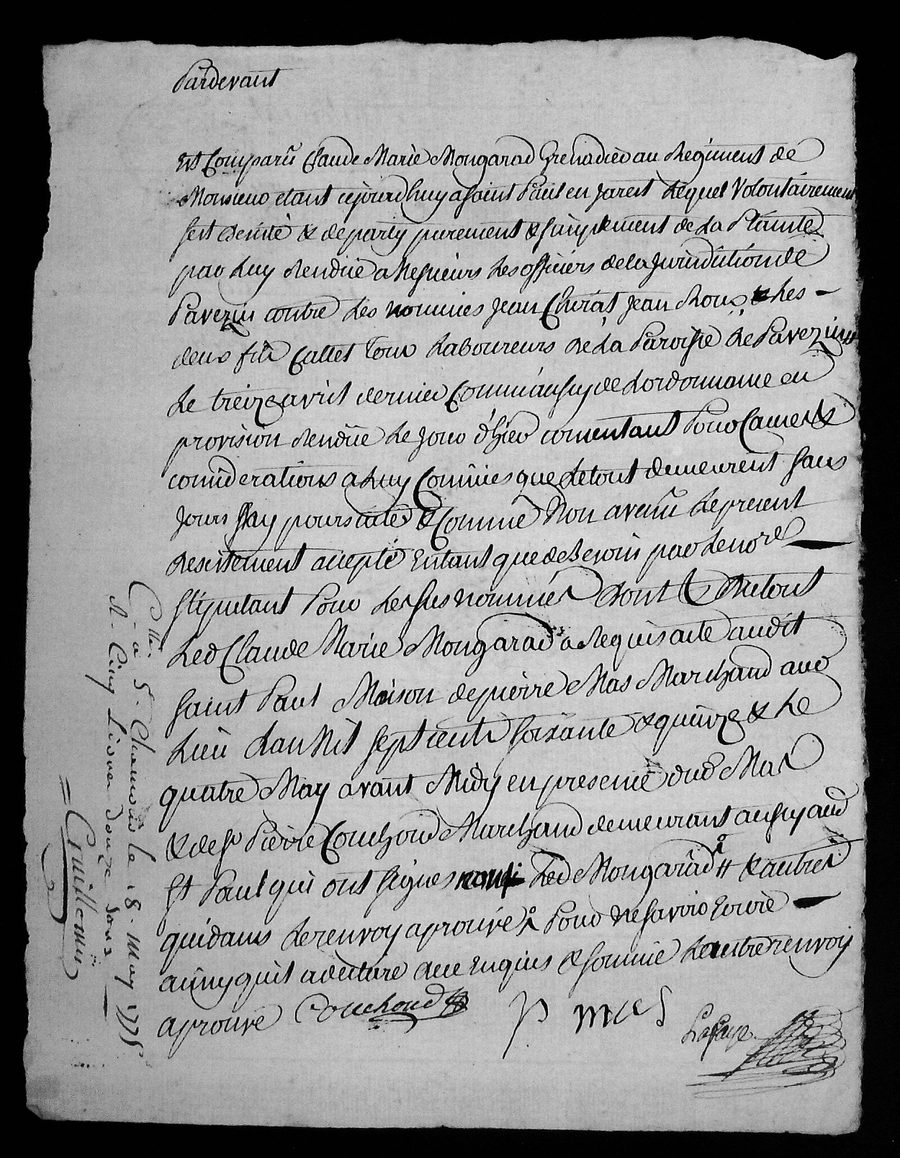 Pardevant
Est Comparu Claude Marie Mongarad Grenadier au Regiment de
Monsieur etant cejourdhuy a Saint Paul en Jarest Lequel Volontairement
sest desisté & departy purement & simplement de La Plainte
par Luy Rendüe a Messieurs Les officiers de la Jurisdiction de
Pavezin contre Les nommés Jean Cherat Jean Roux & Les
deux fils Cattet Tous Laboureurs de La Paroisse de Pavezin
Le treize avril dernier Comme aussy de Lordonnance en
provision Rendüe Le Jour d'hier consentant Pour Causes &
considerations a Luy Connües que Letout demeurent sans
Jours ny poursuites & Comme Non avenu Le present
desistement accepté Entant que de besoin par Le nore
stipulant Pour Les susnommés dont & du tout
Led Claude Marie Mongarad a Requis acte audit
Saint Paul Maison de pierre Mas Marchand aud
Lieu L'an Mil sept cents soixante & quinze & Le
quatre May avant Midy en presence dud Mas
& de sr Pierre Couchoud Marchand demeurant aussy aud
St Paul qui ont signés Led Mongarad & autres
quidans Le renvoy aprouvé Pour ne savoir Ecrire
ainsy quil a declaré aux Enquis & sommé L'autre renvoy
aprouvé Couchoud P mas
Lafaye
C.lle a St Chamond le 18. may 1775
R. Cinq Livres douze sous
Guillemin